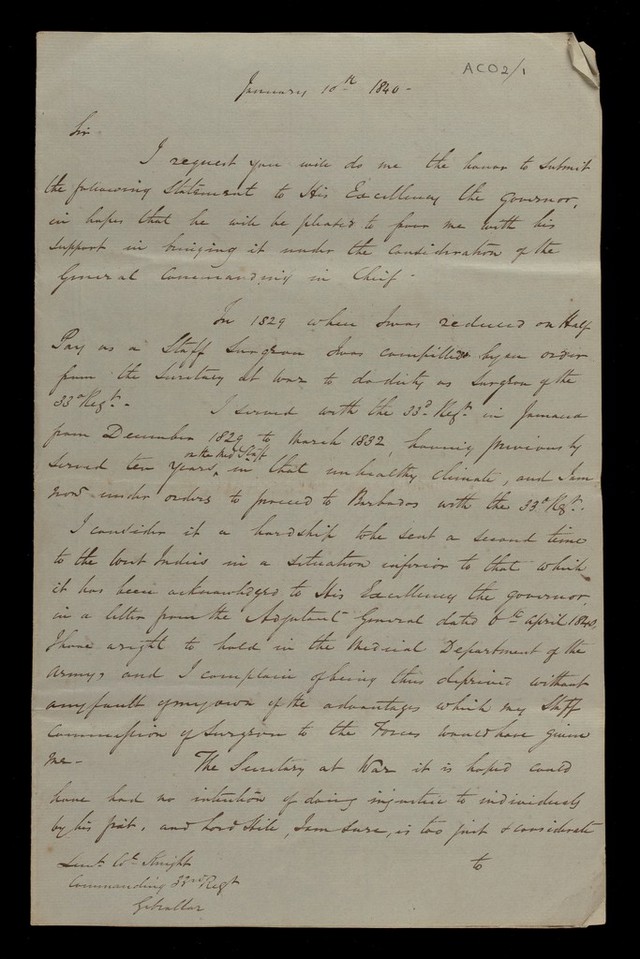 ACO2/1
January 10th 1840 -
Sir
I request you will do me the honor to submit
the following Statement to His Excellency the Governor,
in hopes that he will be pleased to favor me with his
support in bringing it under the consideration of the
General Commanding in Chief -
In 1829 when I was reduced on Half
Pay as a Staff Surgeon I was compelled by an order
from the Secretary at War to do duty as Surgeon of the
33d Regt. - I served with the 33d Regt. in Jamaica
from December 1829 to March 1832, having previously
on the Med Staff
served ten years, in that unhealthy climate, and I am
now under orders to proceed to Barbados with the 33d Regt.
I consider it a hardship to be sent a second time
to the West Indies in a situation inferior to that which
it has been acknowledged to His Excellency the governor,
in a letter from the Adjutant General dated 6th April 1840,
I have a right to hold in the Medical Department of the
army, and I complain of being thus deprived without
any fault of my own of the advantages which my Staff
Commission of Surgeon to the Forces would have given
me - The Secretary at War it is hoped could
have had no intention of doing injustice to individuals
by his and Lord Hill, I am sure, is too just & considerate
to
Lieut. Col. Knight
Commanding 33rd Regt
Gibraltar